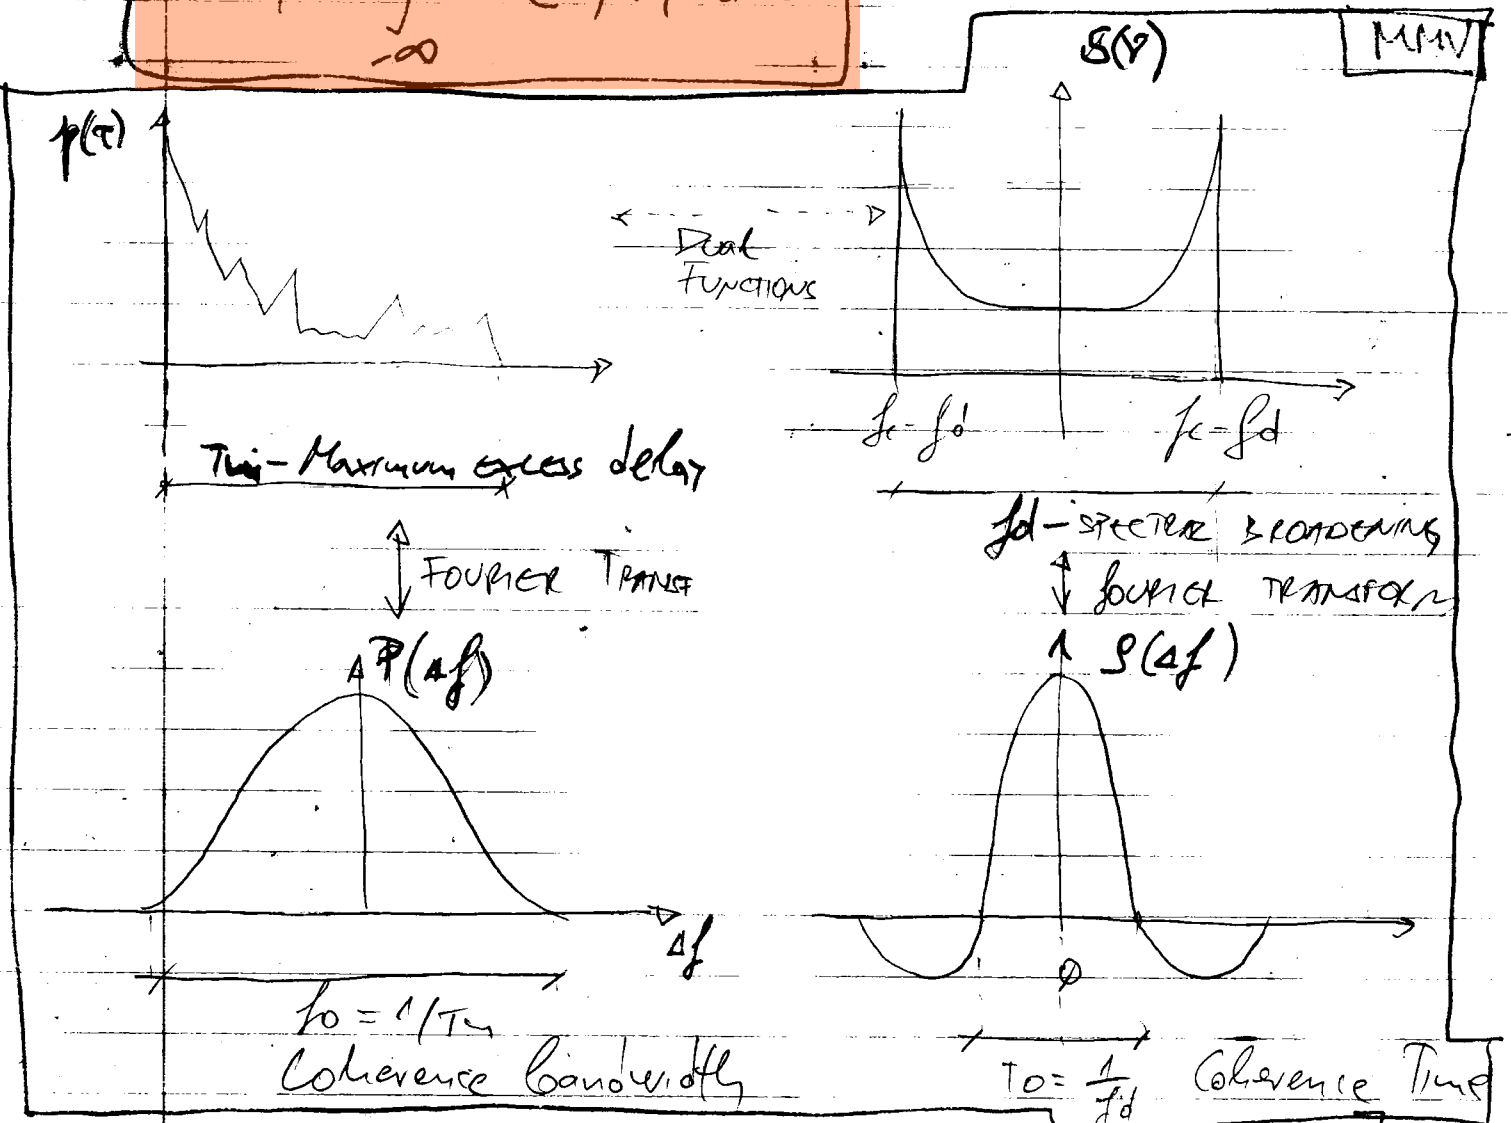 -∞
S(ν)
MMV
p(τ)
Dual
FUNCTIONS
fc-fd
fc-fd
Tm-Maximum excess delay
fd-SPECTRAL BROADENING
FOURIER TRANSF
FOURIER TRANSFORM
P(Δf)
S(Δf)
Δf
0
f0 = 1/Tm
Coherence bandwidth
T0 = 1/fd Coherence Time